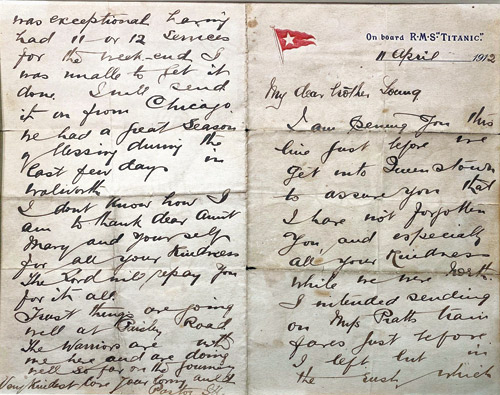 On board R.M.S. "TITANIC."
11 April 1912
My dear brother Young
I am penning you this
line just before we
get into Queenstown
to assure you that
I have not forgotten
you and especially
all your kindness
while we were North.
I intended sending
on Miss Pratts train
fares just before
I left but in
the rush which
was exceptional having
had 11 or 12 services
for the week-end I
was unable to get it
done. I will send
it on from Chicago
We had a great season
of blessing during the
last few days in
Walworth
I dont know how I
am to thank dear Aunt
Mary and yourself
for all your kindness
The Lord will repay you
for it all
Trust things are going
well at Paisley Road.
The Warriors are with
me here and are doing
well so far on the journey
Very kindest love your loving
Pastor